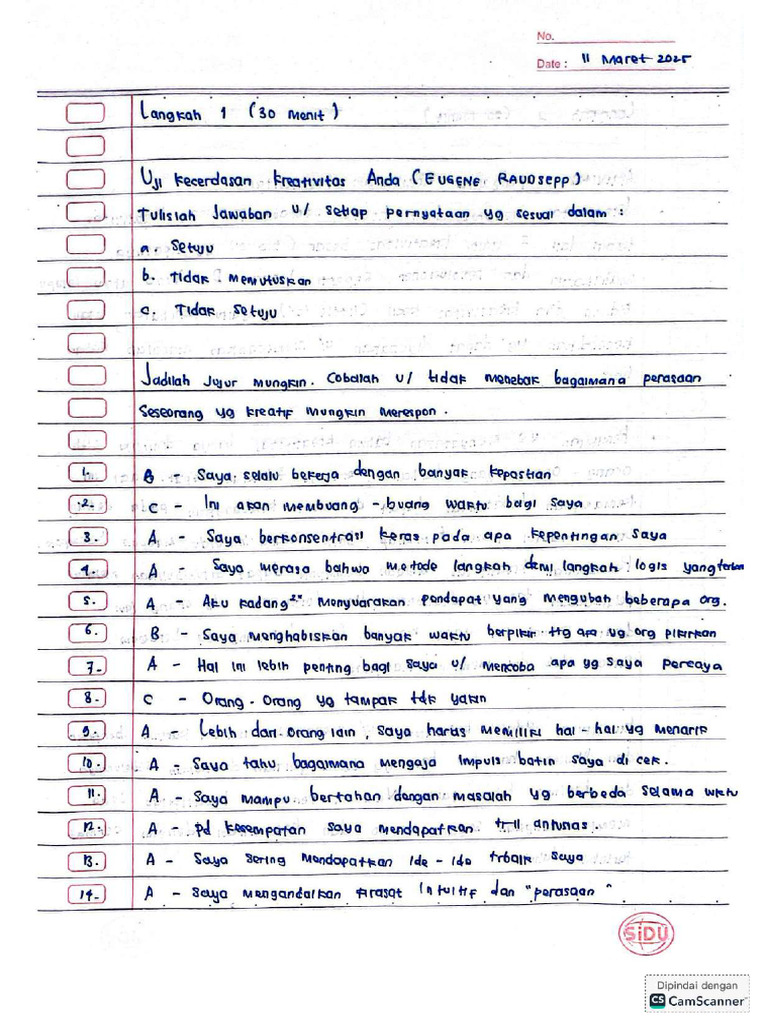 No.
Date : 11 Maret 2025
Langkah 1 (30 menit)
Uji kecerdasan kreativitas Anda (EUGENE RAUDSEPP)
Tulislah Jawaban u/ setiap pernyataan yg sesuai dalam :
a. Setuju
b. Tidak Memutuskan
c. Tidak Setuju
Jadilah Jujur mungkin. Cobalah u/ tidak menebak bagaimana perasaan
Seseorang yg kreatif mungkin merespon.
1. B - Saya selalu bekerja dengan banyak kepastian
2. C - Ini akan membuang - buang waktu bagi saya
3. A - Saya berkonsentrasi keras pada apa kepentingan saya
4. A - Saya merasa bahwa metode langkah demi langkah logis yang
5. A - Aku kadang2" menyuarakan pendapat yang mengubah beberapa org.
6. B - Saya menghabiskan banyak waktu berpikir ttg apa yg org pikirkan
7. A - Hal ini lebih penting bagi saya u/ mencoba apa yg saya percaya
8. C - Orang-Orang yg tampak tdk yakin
9. A - Lebih dari orang lain, saya harus memiliki hal-hal yg menarik
10. A - Saya tahu bagaimana mengaja impuls batin saya di cek.
11. A - Saya mampu bertahan dengan masalah yg berbeda selama wktu
12. A - pd kesempatan saya mendapatkan antunas.
13. A - Saya sering mendapatkan ide-ide trbaik saya
14. A - Saya mengandalkan firasat intuitif dan "perasaan"
SiDU
Dipindai dengan
CS CamScanner